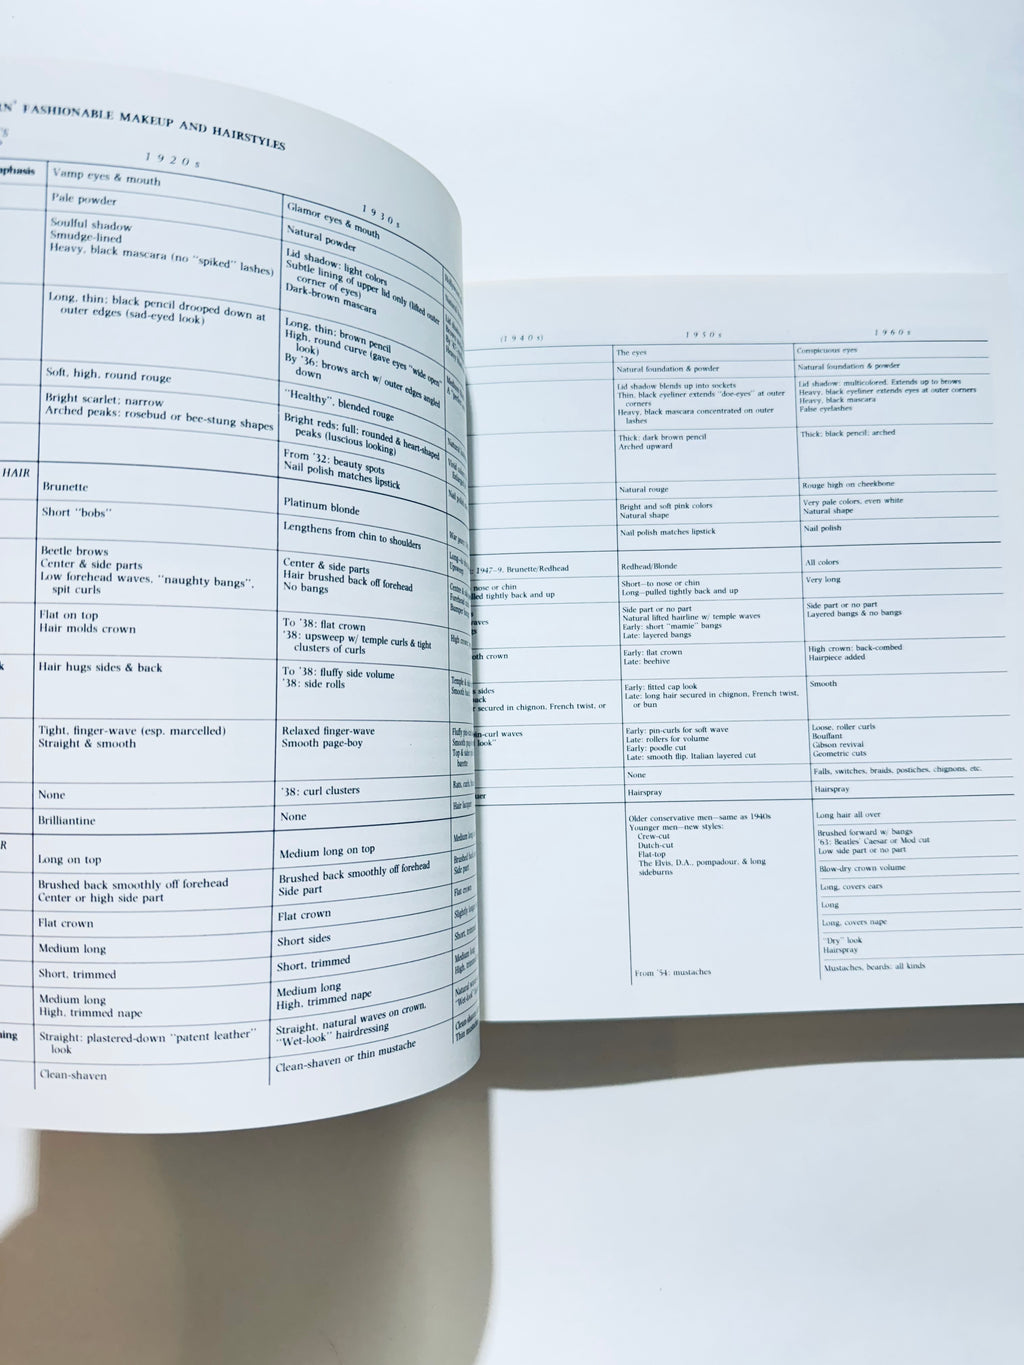 FASHIONABLE MAKEUP AND HAIRSTYLES
1920s
Vamp eyes & mouth
Pale powder
Soulful shadow
Smudge-lined
Heavy, black mascara (no "spiked" lashes)
Long, thin; black pencil drooped down at
outer edges (sad-eyed look)
Soft, high, round rouge
Bright scarlet; narrow
Arched peaks: rosebud or bee-stung shapes
HAIR
Brunette
Short "bobs"
Beetle brows
Center & side parts
Low forehead waves, "naughty bangs",
spit curls
Flat on top
Hair molds crown
Hair hugs sides & back
Tight, finger-wave (esp. marcelled)
Straight & smooth
None
Brilliantine
Long on top
Brushed back smoothly off forehead
Center or high side part
Flat crown
Medium long
Short, trimmed
Medium long
High, trimmed nape
Straight: plastered-down "patent leather"
look
Clean-shaven
1930s
Glamor eyes & mouth
Natural powder
Lid shadow: light colors
Subtle lining of upper lid only (lifted outer
corner of eyes)
Dark-brown mascara
Long, thin; brown pencil
High, round curve (gave eyes "wide open"
look)
By '36: brows arch w/ outer edges angled
down
"Healthy", blended rouge
Bright reds; full; rounded & heart-shaped
peaks (luscious looking)
From '32: beauty spots
Nail polish matches lipstick
Platinum blonde
Lengthens from chin to shoulders
Center & side parts
Hair brushed back off forehead
No bangs
To '38: flat crown
'38: upsweep w/ temple curls & tight
clusters of curls
To '38: fluffy side volume
'38: side rolls
Relaxed finger-wave
Smooth page-boy
'38: curl clusters
None
Medium long on top
Brushed back smoothly off forehead
Side part
Flat crown
Short sides
Short, trimmed
Medium long
High, trimmed nape
Straight, natural waves on crown,
"Wet-look" hairdressing
Clean-shaven or thin mustache
(1940s)
1947-9. Brunette/Redhead
nose or chin
tightly back and up
crown
sides
secured in chignon, French twist, or
curl waves
look"
1950s
The eyes
Natural foundation & powder
Lid shadow blends up into sockets
Thin, black eyeliner extends "doe-eyes" at outer
corners
Heavy, black mascara concentrated on outer
lashes
Thick; dark brown pencil
Arched upward
Natural rouge
Bright and soft pink colors
Natural shape
Nail polish matches lipstick
Redhead/Blonde
Short—to nose or chin
Long—pulled tightly back and up
Side part or no part
Natural lifted hairline w/ temple waves
Early: short "mamie" bangs
Late: layered bangs
Early: flat crown
Late: beehive
Early: fitted cap look
Late: long hair secured in chignon, French twist,
or bun
Early: pin-curls for soft wave
Late: rollers for volume
Early: poodle cut
Late: smooth flip, Italian layered cut
None
Hairspray
Older conservative men—same as 1940s
Younger men—new styles:
Crew-cut
Dutch-cut
Flat-top
The Elvis, D.A., pompadour, & long
sideburns
From '54: mustaches
1960s
Conspicuous eyes
Natural foundation & powder
Lid shadow: multicolored. Extends up to brows
Heavy, black eyeliner extends eyes at outer corners
Heavy, black mascara
False eyelashes
Thick; black pencil; arched
Rouge high on cheekbone
Very pale colors, even white
Natural shape
Nail polish
All colors
Very long
Side part or no part
Layered bangs & no bangs
High crown; back-combed
Hairpiece added
Smooth
Loose, roller curls
Bouffant
Gibson revival
Geometric cuts
Falls, switches, braids, postiches, chignons, etc.
Hairspray
Long hair all over
Brushed forward w/ bangs
'63: Beatles' Caesar or Mod cut
Low side part or no part
Blow-dry crown volume
Long, covers ears
Long
Long, covers nape
"Dry" look
Hairspray
Mustaches, beards: all kinds